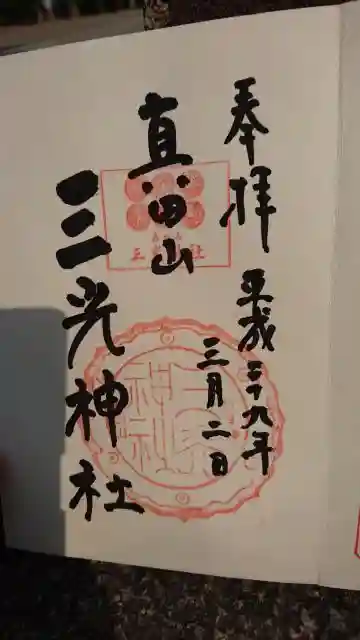 奉拝
平成二十九年
三月二日
真田山
三光神社